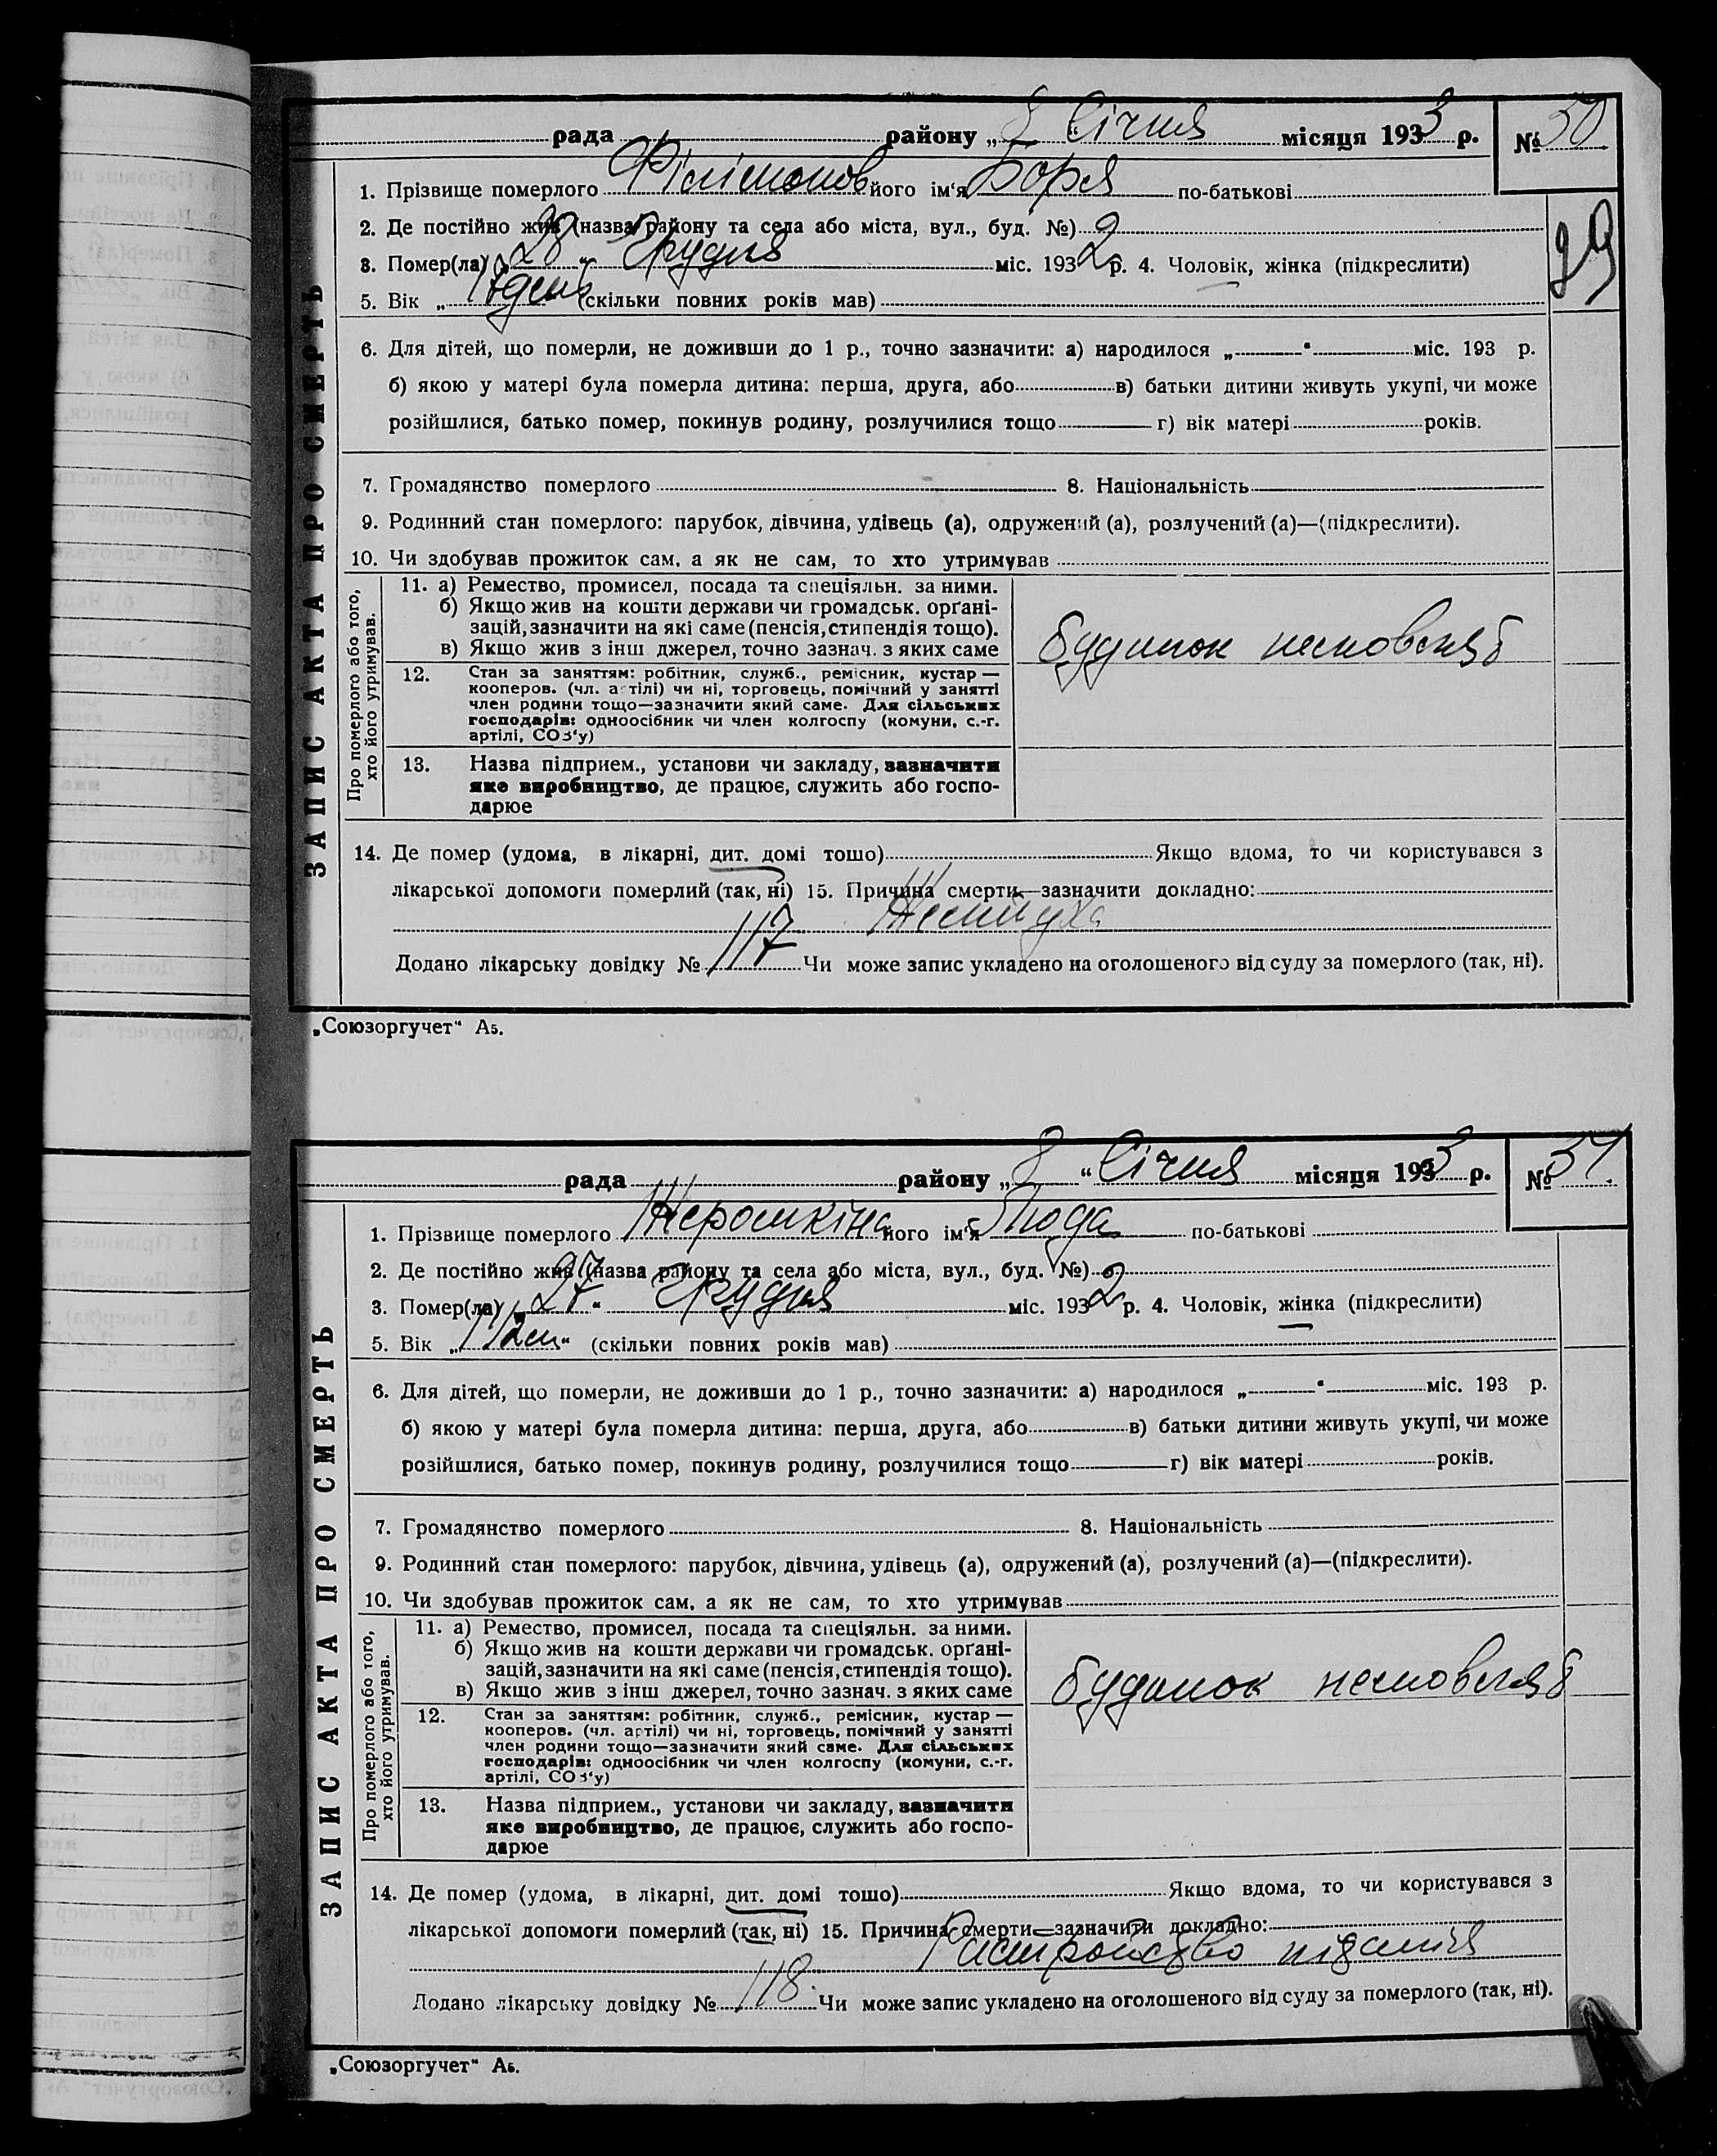 рада району „ 8 “ Січня місяця 1933 р. № 30
1. Прізвище померлого Філімонов його ім‘я Боря по-батькові
2. Де постійно жив (назва району та села або міста, вул., буд. №)
29
3. Помер(ла) „ 28 “ Грудня міс. 1932 р. 4. Чоловік, жінка (підкреслити)
5. Вік „ день (скільки повних років мав)
6. Для дітей, що померли, не доживши до 1 р., точно зазначити: а) народилося „ “ міс. 193 р.
б) якою у матері була померла дитина: перша, друга, або в) батьки дитини живуть укупі, чи може
розійшлися, батько помер, покинув родину, розлучилися тощо г) вік матері років.
7. Громадянство померлого 8. Національність
9. Родинний стан померлого: парубок, дівчина, удівець (а), одружений (а), розлучений (а)—(підкреслити).
10. Чи здобував прожиток сам, а як не сам, то хто утримував
ЗАПИС АКТА ПРО СМЕРТЬ
Про померлого або того,
хто його утримував.
11. а) Ремество, промисел, посада та спеціяльн. за ними.
б) Якщо жив на кошти держави чи громадськ. орґані-
зацій, зазначити на які саме (пенсія, стипендія тощо).
в) Якщо жив з інш джерел, точно зазнач. з яких саме
будинок немовлят
12. Стан за заняттям: робітник, служб., ремісник, кустар —
кооперов. (чл. артілі) чи ні, торговець, помічний у занятті
член родини тощо—зазначити який саме. Для сільських
господарів: одноосібник чи член колгоспу (комуни, с.-г.
артілі, СОЗ‘у)
13. Назва підприєм., установи чи закладу, зазначити
яке виробництво, де працює, служить або госпо-
дарює
14. Де помер (удома, в лікарні, дит. домі тошо) Якщо вдома, то чи користувався з
лікарської допомоги померлий (так, ні) 15. Причина смерти—зазначити докладно:
Додано лікарську довідку № 117 Чи може запис укладено на оголошеного від суду за померлого (так, ні).
„Союзоргучет“ А5.
рада району „ 8 “ Січня місяця 1933 р. № 31.
1. Прізвище померлого його ім‘я по-батькові
2. Де постійно жив (назва району та села або міста, вул., буд. №)
3. Помер(ла) „ 27 “ Грудня міс. 1932 р. 4. Чоловік, жінка (підкреслити)
5. Вік „ “ (скільки повних років мав)
6. Для дітей, що померли, не доживши до 1 р., точно зазначити: а) народилося „ “ міс. 193 р.
б) якою у матері була померла дитина: перша, друга, або в) батьки дитини живуть укупі, чи може
розійшлися, батько помер, покинув родину, розлучилися тощо г) вік матері років.
7. Громадянство померлого 8. Національність
9. Родинний стан померлого: парубок, дівчина, удівець (а), одружений (а), розлучений (а)—(підкреслити).
10. Чи здобував прожиток сам, а як не сам, то хто утримував
ЗАПИС АКТА ПРО СМЕРТЬ
Про померлого або того,
хто його утримував.
11. а) Ремество, промисел, посада та спеціяльн. за ними.
б) Якщо жив на кошти держави чи громадськ. орґані-
зацій, зазначити на які саме (пенсія, стипендія тощо).
в) Якщо жив з інш джерел, точно зазнач. з яких саме
будинок немовлят
12. Стан за заняттям: робітник, служб., ремісник, кустар —
кооперов. (чл. артілі) чи ні, торговець, помічний у занятті
член родини тощо—зазначити який саме. Для сільських
господарів: одноосібник чи член колгоспу (комуни, с.-г.
артілі, СОЗ‘у)
13. Назва підприєм., установи чи закладу, зазначити
яке виробництво, де працює, служить або госпо-
дарює
14. Де помер (удома, в лікарні, дит. домі тошо) Якщо вдома, то чи користувався з
лікарської допомоги померлий (так, ні) 15. Причина смерти—зазначити докладно:
Растройство
Додано лікарську довідку № 118. Чи може запис укладено на оголошеного від суду за померлого (так, ні).
„Союзоргучет“ А5.